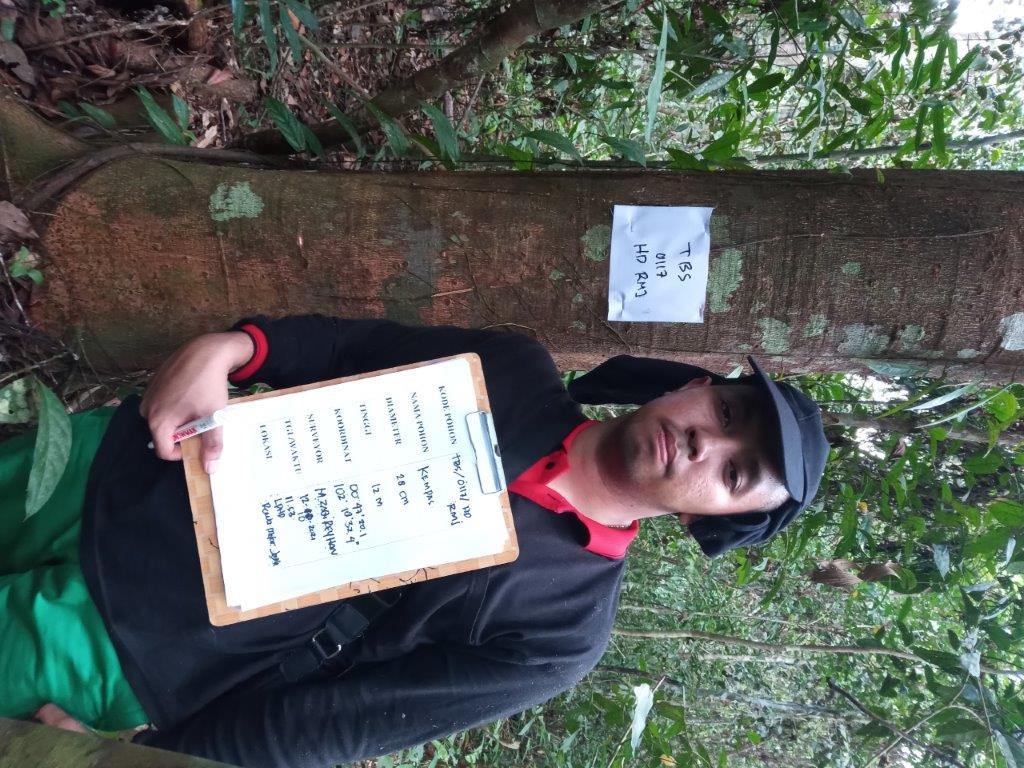 TBS
0117
HD RMJ
KODE POHON TBS/0117/HD
RMJ
NAMA POHON KEMPAS
DIAMETER 28 CM
TINGGI 12 M
KOORDINAT 00°47'20.1
102°18'32.4"
SURVEYOR M.ZAQI REYHAN
TGL/WAKTU 12. -2021
11.53
LOKASI : LPHD
Rawa Mekar Jaya